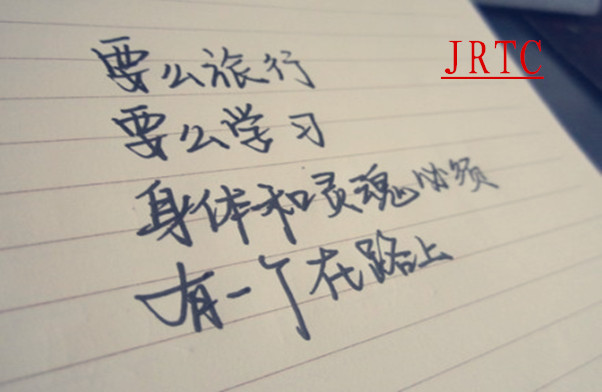 JRTC
要么旅行
要么学习
身体和灵魂必须
有一个在路上